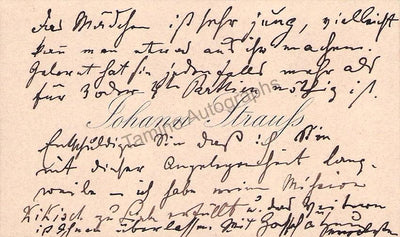 Das Mädchen ist sehr jung, vielleicht
kann man etwas aus ihr machen.
Gelernt hat sie jedenfalls mehr als
für 3 oder 4 Partien nötig ist.
Johann Strauss
Tamino Autographs
Entschuldigen Sie daß ich Sie
mit dieser Angelegenheit lang-
weile – ich habe meine Mission
erfüllt u. das Weitere
ist Ihnen überlassen. Mit